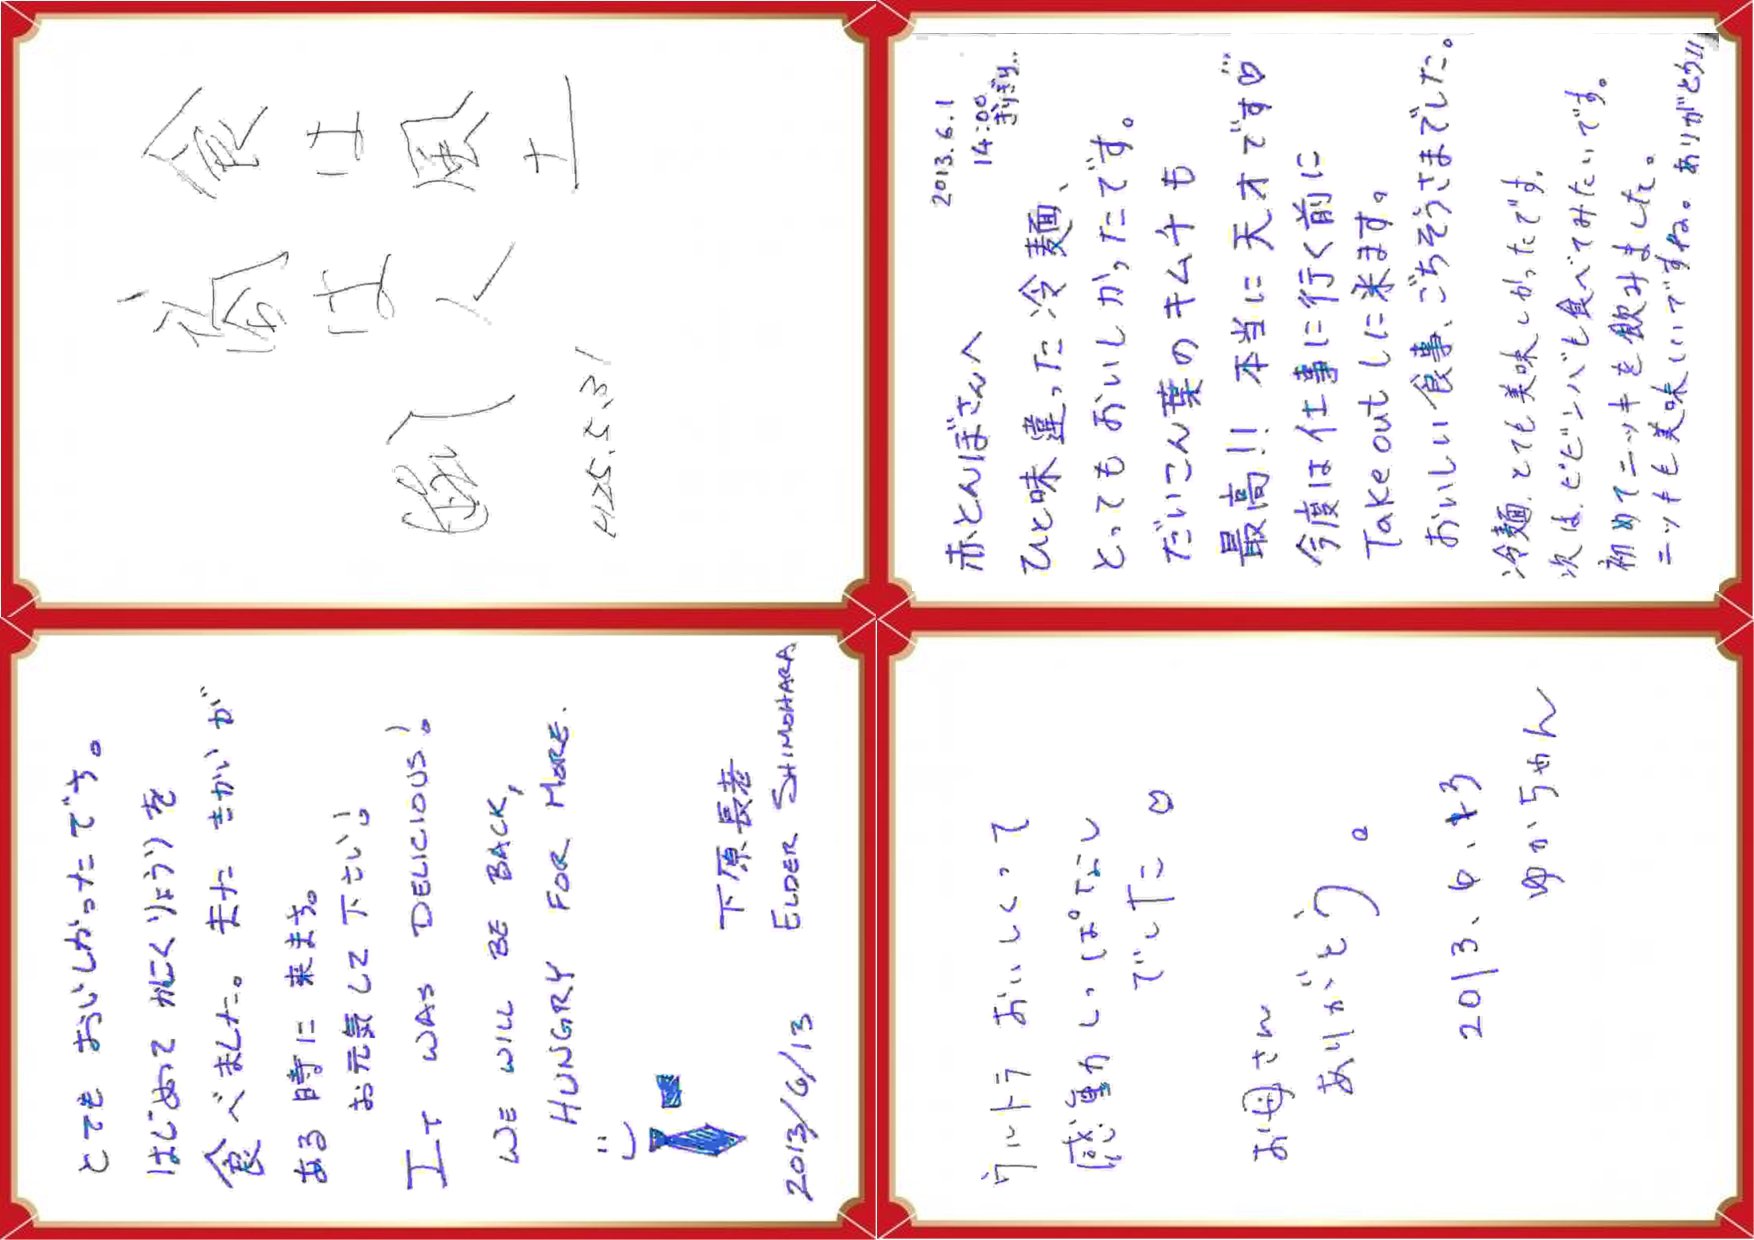 食は風土
H25.5.31
2013.6.1
14:00
ぎりぎり…
赤とんぼさんへ
ひと味違った冷麺、
とってもおいしかったです。
だいこん葉のキムチも
最高!! 本当に天才です♡…
今度は仕事に行く前に
Take outしに来ます。
おいしい食事、ごちそうさまでした。
冷麺、とても美味しかったです。
次は、ビビンバも食べてみたいです。
初めてニッキを飲みました。
ニッキも美味しいですね。ありがとう!!
とても おいしかったです。
はじめて かんこくりょうりを
食べました。また きかいが
ある時に 来ます。
お元気して下さい!
IT WAS DELICIOUS!
WE WILL BE BACK,
HUNGRY FOR MORE.
下原長老
2013/6/13 ELDER SHIMOHARA
ウルトラ おいしくって
感動しっぱなし
でした♡
お母さん
ありがとう。
2013、6、
ゆかちゃん